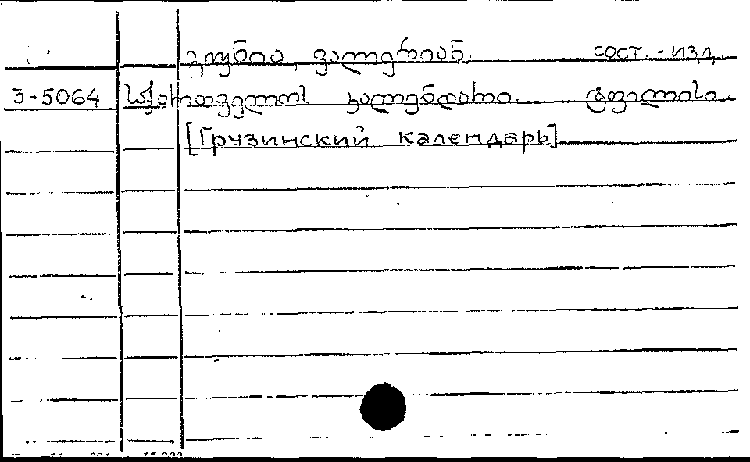 გუნია, ვალერიან. сост.-изд.
З-5064 საქართველოს კალენდარი. ტფილისი.
[Грузинский календарь]